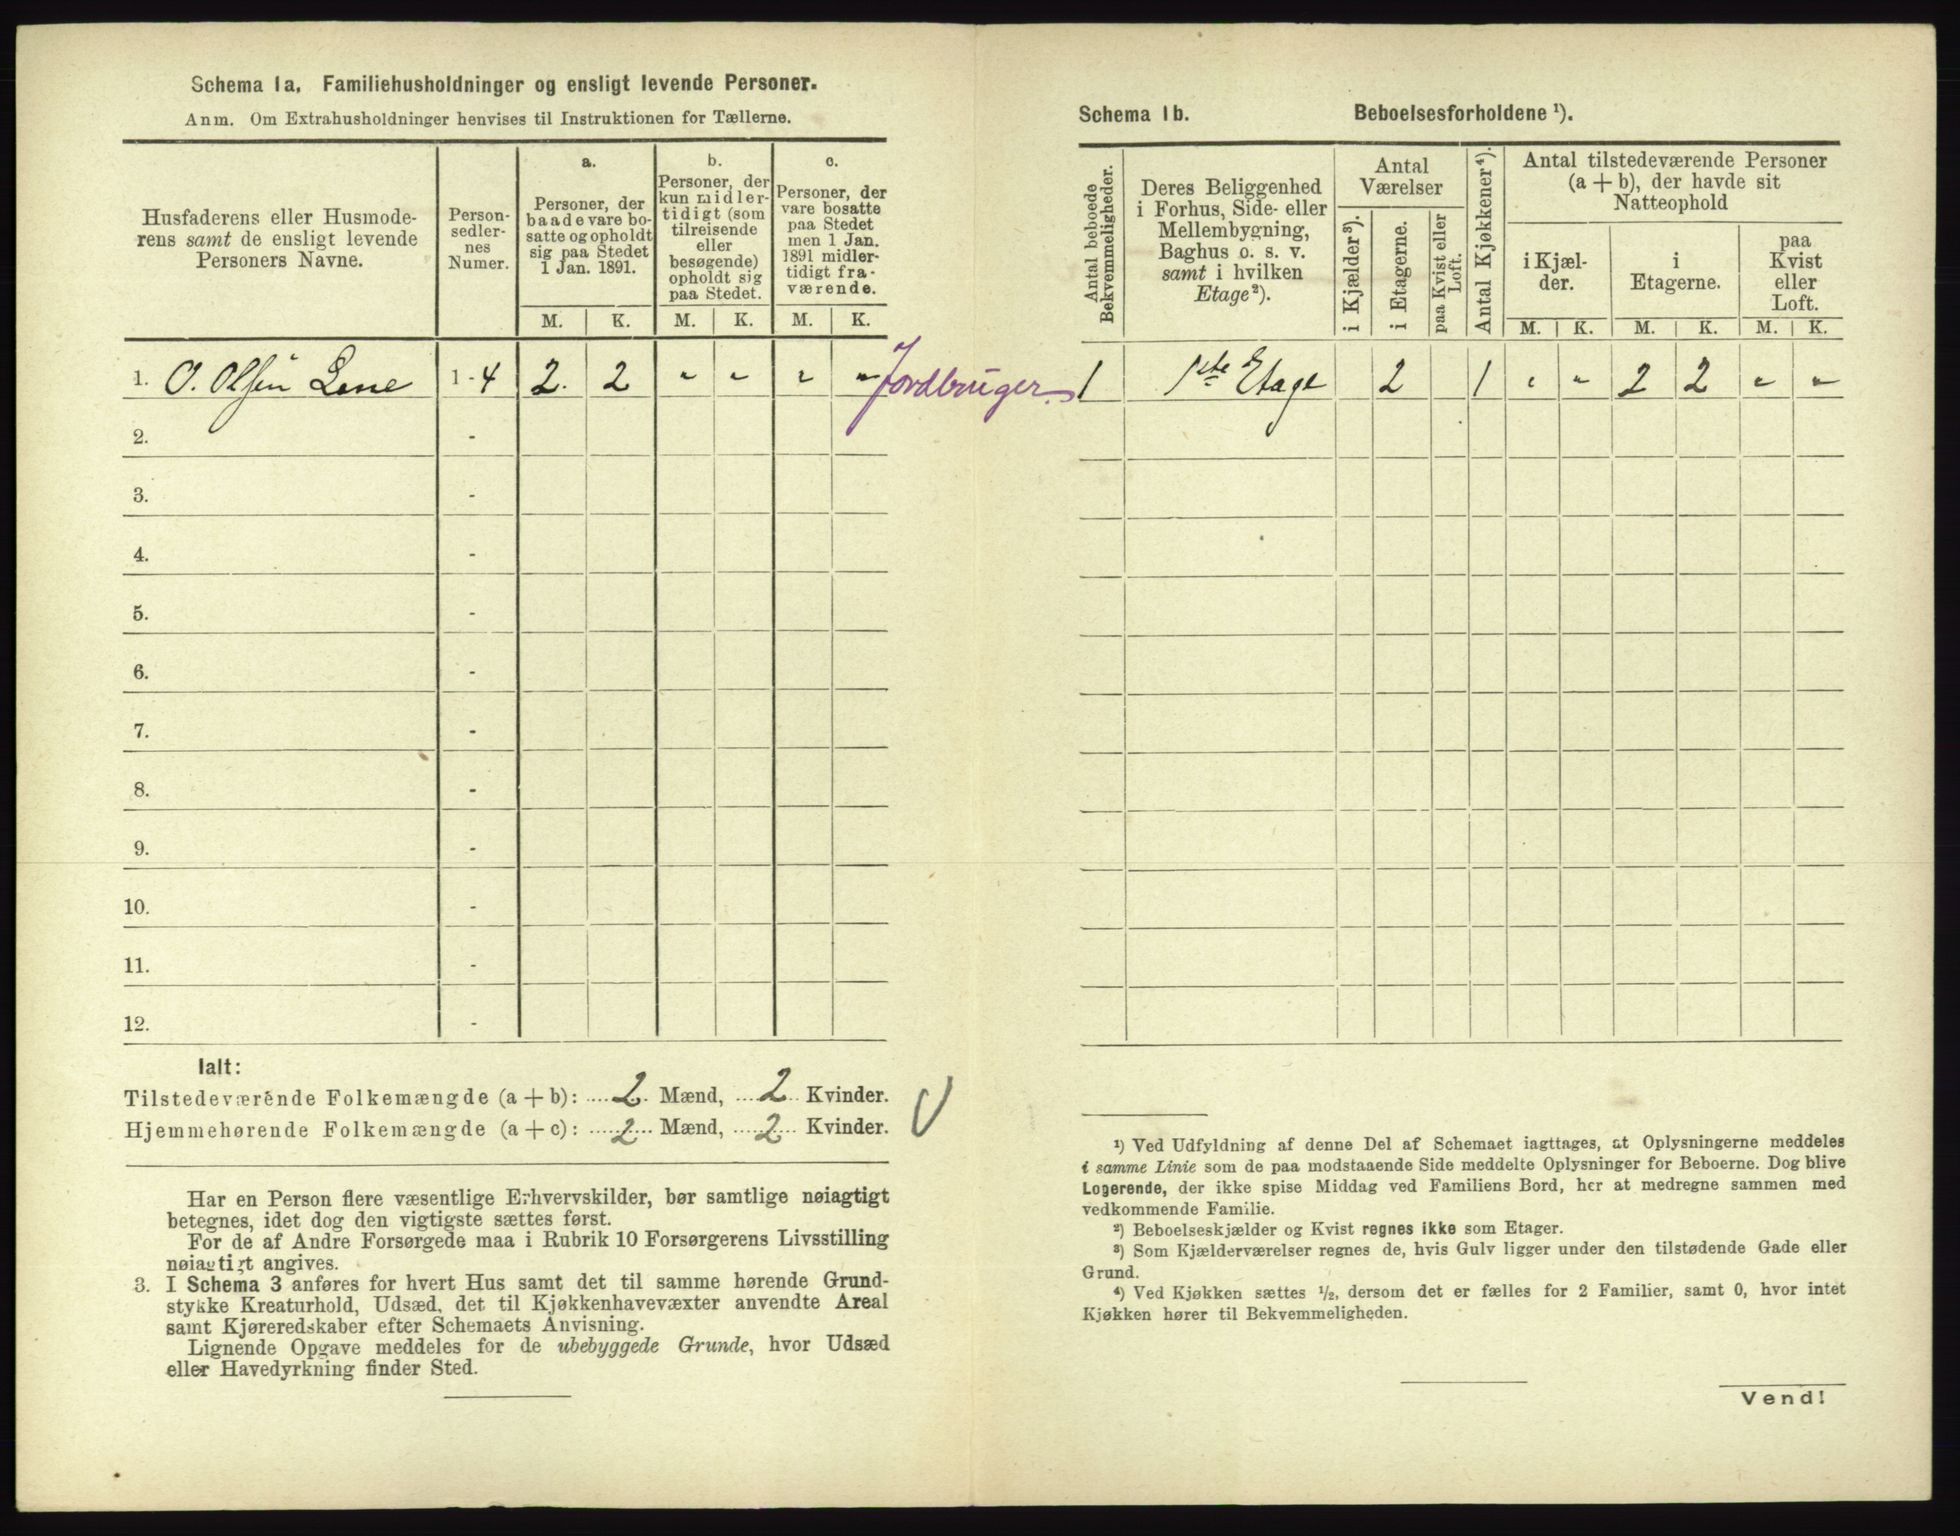 Schema 1a. Familiehusholdninger og ensligt levende Personer.
Anm. Om Extrahusholdninger henvises til Instruktionen for Tællerne.
Husfaderens eller Husmode-
rens samt de ensligt levende
Personers Navne.
Person-
sedler-
nes
Numer.
a.
Personer, der
baade vare bo-
satte og opholdt
sig paa Stedet
1 Jan. 1891.
b.
Personer, der
kun midler-
tidigt (som
tilreisende
eller
besøgende)
opholdt sig
paa Stedet.
c.
Personer, der
vare bosatte
paa Stedet
men 1 Jan.
1891 midler-
tidigt fra-
værende.
M. K. M. K. M. K.
1. O. Olsen 1 - 4 2. 2 " " " " Jordbruger.
2. -
3. -
4. -
5. -
6. -
7. -
8. -
9. -
10. -
11. -
12. -
Ialt:
Tilstedeværende Folkemængde (a + b): 2 Mænd, 2 Kvinder.
Hjemmehørende Folkemængde (a + c): 2 Mænd, 2 Kvinder.
Har en Person flere væsentlige Erhvervskilder, bør samtlige nøiagtigt
betegnes, idet dog den vigtigste sættes først.
For de af Andre Forsørgede maa i Rubrik 10 Forsørgerens Livsstilling
nøiagtigt angives.
3. I Schema 3 anføres for hvert Hus samt det til samme hørende Grund-
stykke Kreaturhold, Udsæd, det til Kjøkkenhavevæxter anvendte Areal
samt Kjøreredskaber efter Schemaets Anvisning.
Lignende Opgave meddeles for de ubebyggede Grunde, hvor Udsæd
eller Havedyrkning finder Sted.
Schema 1b. Beboelsesforholdene ¹).
Antal beboede
Bekvemmeligheder.
Deres Beliggenhed
i Forhus, Side- eller
Mellembygning,
Baghus o. s. v.
samt i hvilken
Etage²).
Antal
Værelser
i Kjælder³).
i Etagerne.
paa Kvist eller
Loft.
Antal Kjøkkener⁴).
Antal tilstedeværende Personer
(a + b), der havde sit
Natteophold
i Kjæl-
der.
i
Etagerne.
paa
Kvist
eller
Loft.
M. K. M. K. M. K.
1 1ste Etage 2 1 " " 2 2 " "
¹) Ved Udfyldning af denne Del af Schemaet iagttages, at Oplysningerne meddeles
i samme Linie som de paa modstaaende Side meddelte Oplysninger for Beboerne. Dog blive
Logerende, der ikke spise Middag ved Familiens Bord, her at medregne sammen med
vedkommende Familie.
²) Beboelseskjælder og Kvist regnes ikke som Etager.
³) Som Kjælderværelser regnes de, hvis Gulv ligger under den tilstødende Gade eller
Grund.
⁴) Ved Kjøkken sættes ½, dersom det er fælles for 2 Familier, samt 0, hvor intet
Kjøkken hører til Bekvemmeligheden.
Vend!